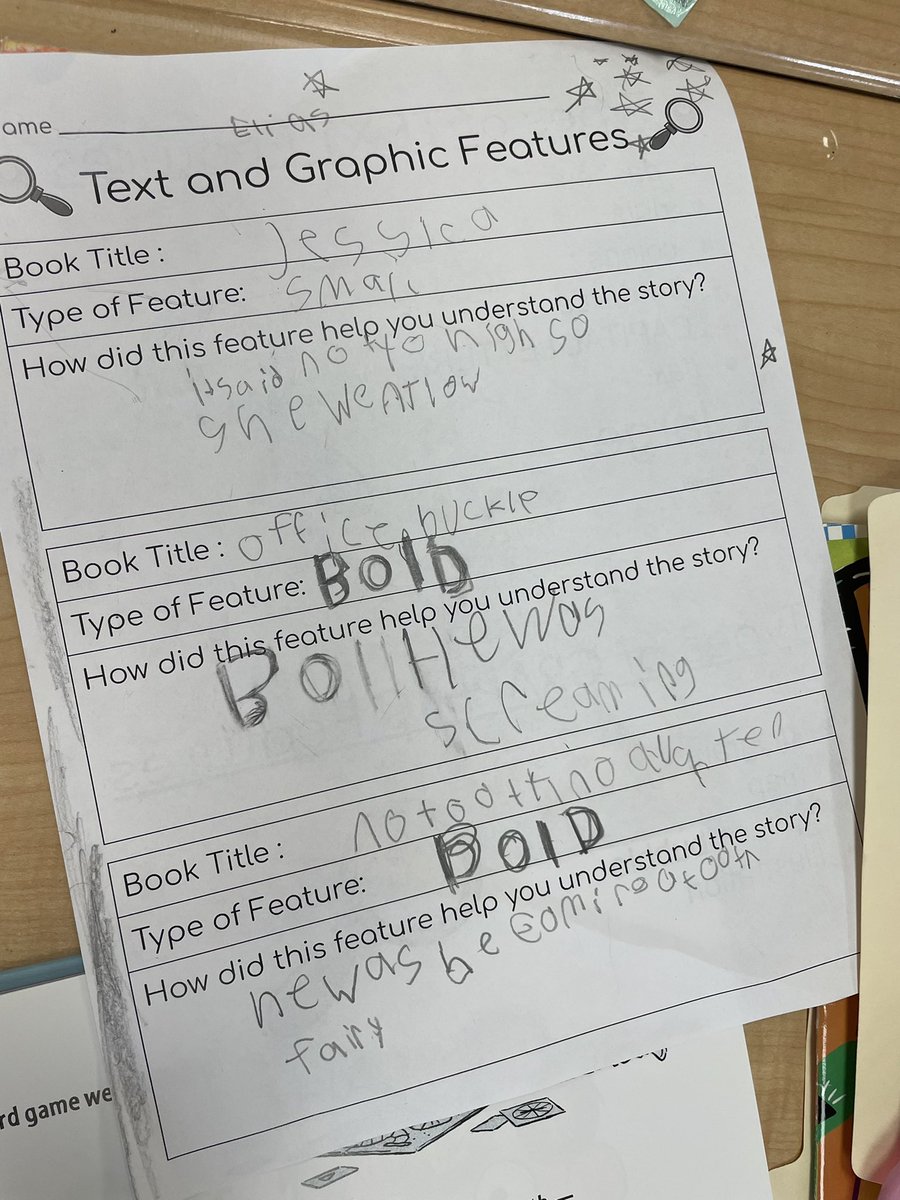 ame Elias
Text and Graphic Features
Book Title : Jessica
Type of Feature: small
How did this feature help you understand the story?
it said no to high so
she weAT low
Book Title : office buckle
Type of Feature: BolD
How did this feature help you understand the story?
Boll He was
screaming
Book Title : no tooth no
Type of Feature: BolD
How did this feature help you understand the story?
he was be comi a tooth
fairy
rd game we